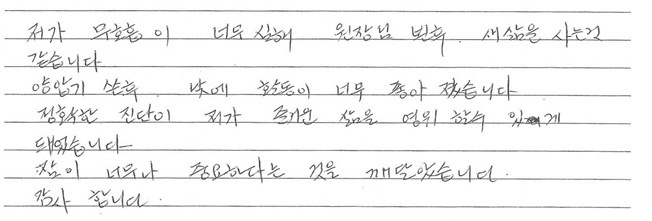 저가 무호흡이 너무 심해 원장님 뵌후. 새삶을 사는것
같습니다
양압기 쓴후. 낮에 활동이 너무 좋아 졌습니다
정확한 진단이 저가 즐거운 삶을 영위 할수 있게
돼었습니다
잠이 너무나 중요하다는 것을 깨달았습니다.
감사 합니다.